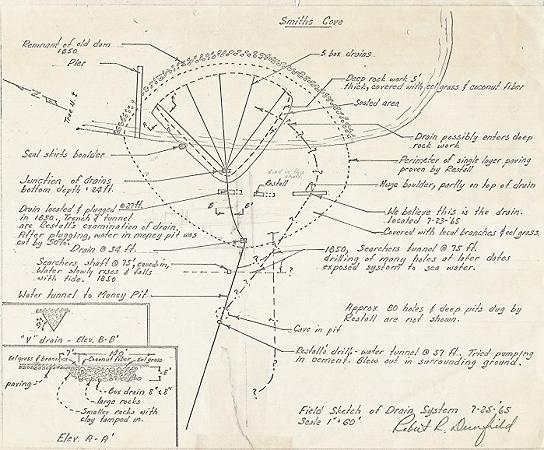 Smiths Cove
Remnant of old dam
1850
Pier
5 box drains
Deep rock work 5'
thick, covered with eel grass & coconut fiber
Sealed area
True N.
Drain possibly enters deep
rock work
Seal skirts boulder
Perimeter of single layer paving
proven by Restall
Junction of drains
bottom depth + 24 ft.
Restall
Huge boulder, partly on top of drain
Drain located & plugged @ 27 ft.
in 1850. Trench & tunnel
are Restall's examination of drain.
After plugging, water in money pit was
cut by 50%.
We believe this is the drain.
located 7-23-65
Covered with local branches & eel grass.
B B'
Drain @ 34 ft.
1850, Searchers tunnel @ 75 ft.
drilling of many holes at later dates
exposed system to sea water.
Searchers shaft @ 75', caved in,
Water slowly rises & falls
with tide. 1850
Water tunnel to Money Pit
Approx. 80 holes & deep pits dug by
Restall are not shown.
Cave in pit
"V" drain - Elev. B-B'
Restall's drill - water tunnel @ 57 ft. Tried pumping
in cement. Blew out in surrounding ground.
Eel grass & branches
Coconut fiber
Eel grass
paving
Box drain 8" x 8"
large rocks
Smaller rocks with
clay tamped in.
Elev. A-A'
Field Sketch of Drain System 7-25-'65
Scale 1" = 60'
Robert R. Dunfield